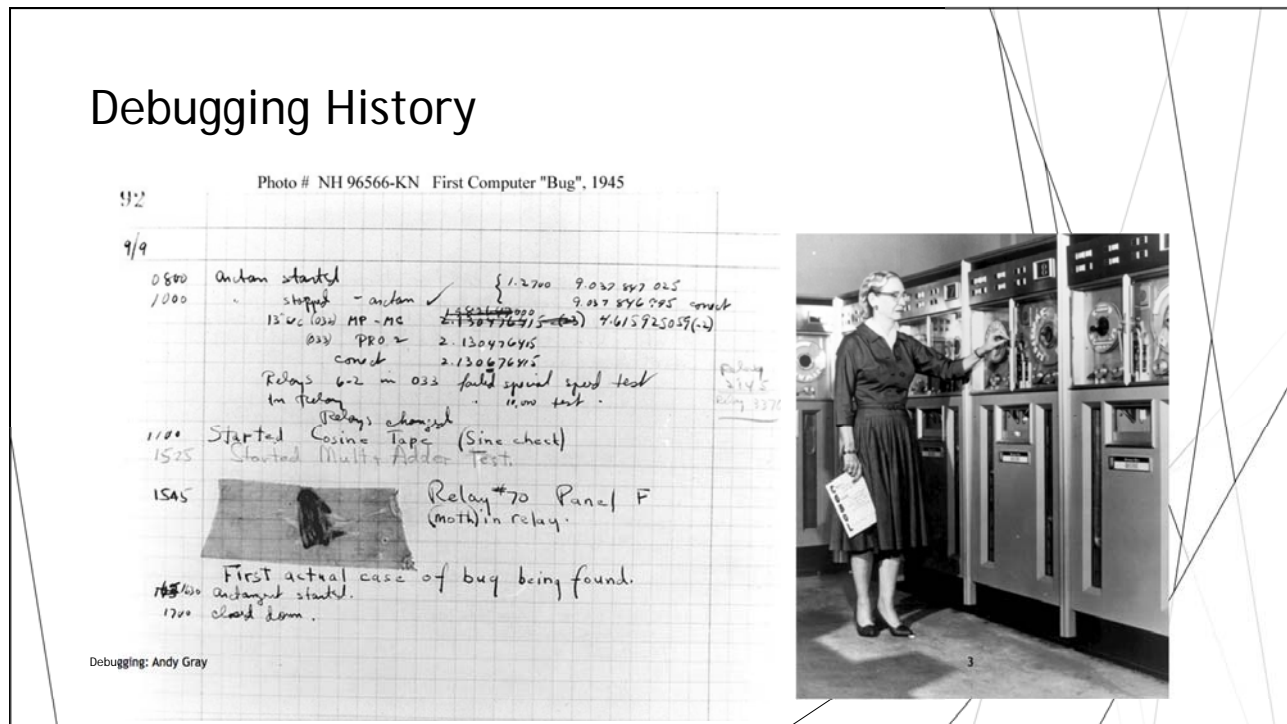 Debugging History
Photo # NH 96566-KN First Computer "Bug", 1945
92
9/9
0800 antan started { 1.2700 9.037 847 025
1000 " stopped - antan ✓ 9.037 846 995 correct
13"uc (032) MP - MC 2.130476415 (-3) 4.615925059(-2)
(033) PRO 2 2.130476415
correct 2.130676415
Relays 6-2 in 033 failed special speed test
in relay " 10,000 test .
Relays changed
1100 Started Cosine Tape (Sine check)
1525 Started Mult + Adder Test.
1545 Relay #70 Panel F
(moth) in relay.
First actual case of bug being found.
1630 antangent started.
1700 closed down .
Relay
2145
Relay 3370
Debugging: Andy Gray
3